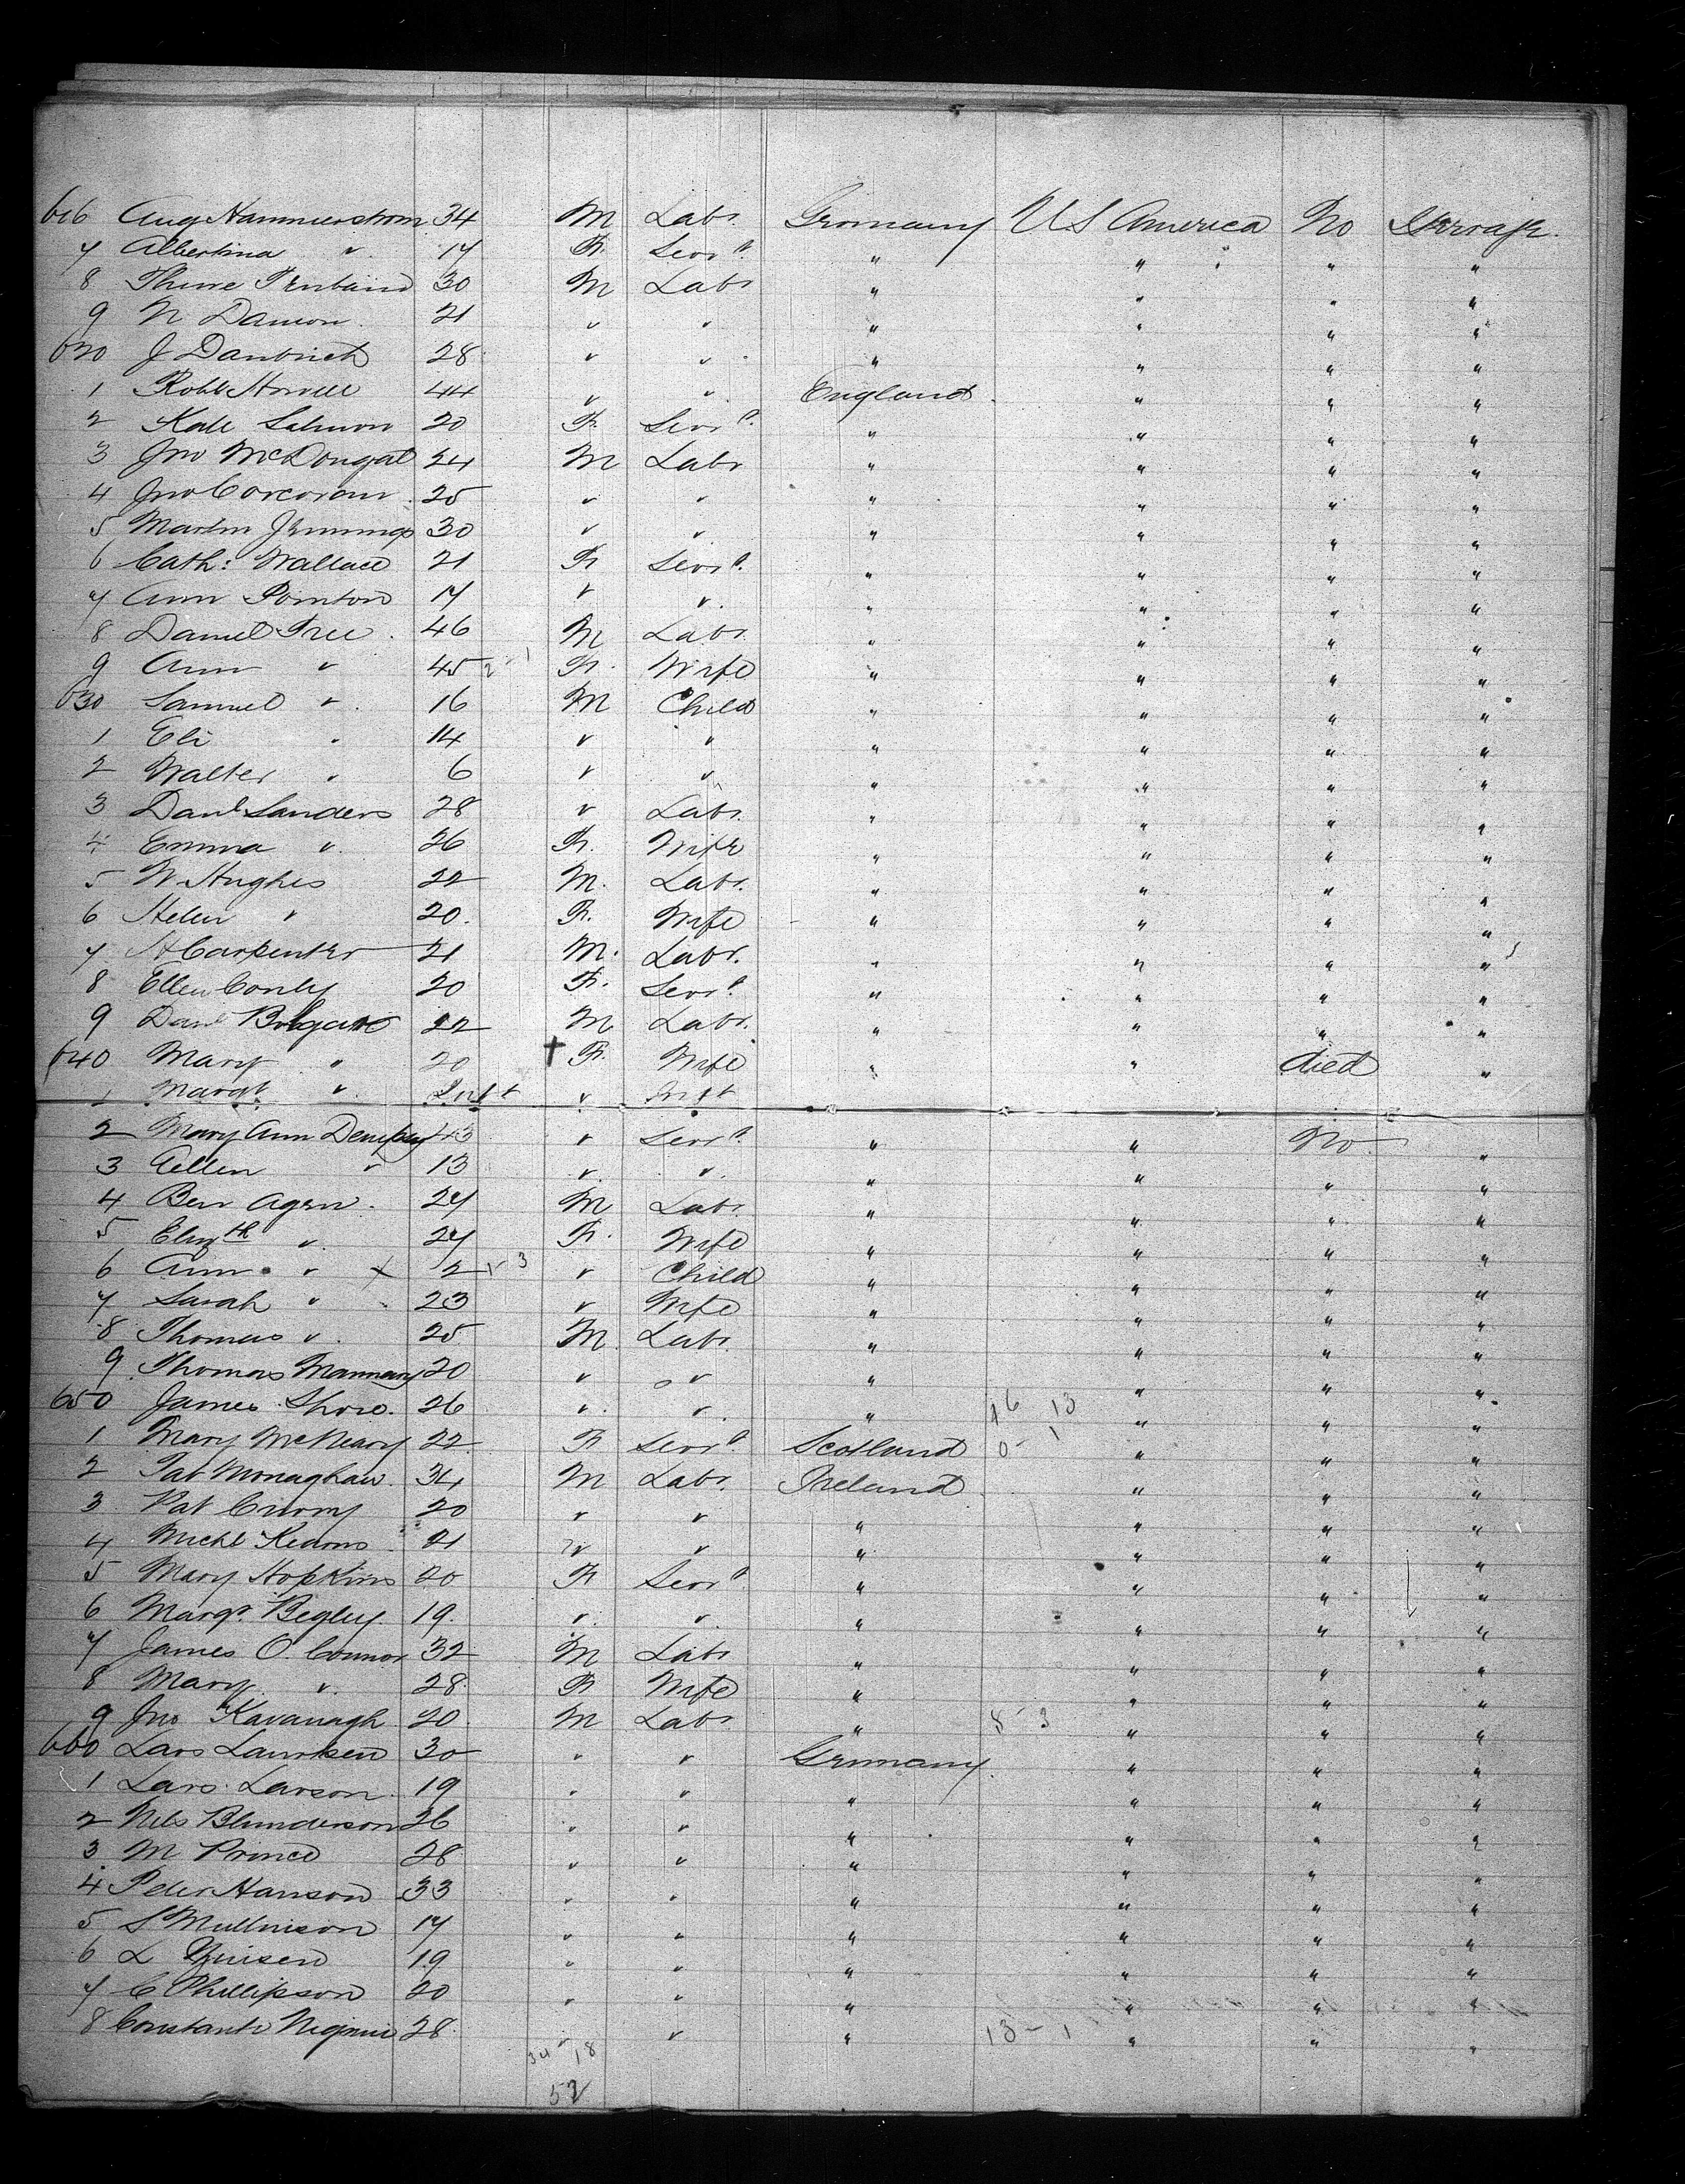 616 Aug Hammerstrom 34 M Labr Germany U S America No Steerage
7 Albertina " 17 F. Servt. " " " "
8 30 M Labr " " " "
9 N Damon 21 " " " " " "
620 J 28 " " " " " "
1 Robt Howell 44 " " England " " "
2 Kate Salmon 20 F. Servt. " " " "
3 Jno McDougal 24 M Labr " " " "
4 Jno Corcoran 25 " " " " " "
5 Martin Jennings 30 " " " " " "
6 Cath: Wallace 21 F Servt. " " " "
7 Ann Pointon 17 " " " " " "
8 Daniel Free 46 M Labr. " " " "
9 Ann " 45 F. Wife " " " "
630 Samuel " 16 M Child " " " "
1 Eli " 14 " " " " " "
2 Walter " 6 " " " " " "
3 Danl Sanders 28 " Labr. " " " "
4 Emma " 26 F. Wife " " " "
5 W Hughes 22 M. Labr. " " " "
6 Helen " 20. F. Wife " " " "
7 H Carpenter 21 M. Labr. " " " "
8 Ellen Conly 20 F. Servt. " " " "
9 Danl 22 M Labr. " " " "
640 Mary " 20 † F. Wife " " died "
1 Margt " Inft " Inft
2 Mary Ann Dempsey 43 " Servt. " " No "
3 Aellen " 13 " " " " " "
4 Ben Agen 27 M Labr. " " " "
5 Elizth " 27 F. Wife " " " "
6 Ann " x 2 " Child " " " "
7 Sarah " 23 " Wife " " " "
8 Thomas " 25 M Labr. " " " "
9 Thomas Mannary 20 " " " " " "
650 James Shore. 26 " " " " " "
1 Mary McNeary 22 F Servt. Scotland " " "
2 Pat Monaghan 34 M Labr. Ireland " " "
3 Pat Curry 20 " " " " " "
4 Michl Kearns 21 " " " " " "
5 Mary Hopkins 20 F Servt. " " " "
6 Margt. Begley 19. " " " " " "
7 James O. Connor 32 M Labr " " " "
8 Mary " 28 F Wife " " " "
9 Jno Kavanagh 20 M Labr " " " "
660 Lars Laursen 30 " " Germany " " "
1 Lars Larson 19 " " " " " "
2 Nils Blunderson 26 " " " " " "
3 M Prince 28 " " " " " "
4 Peter Hanson 33 " " " " " "
5 S Mullinson 17 " " " " " "
6 L 19 " " " " " "
7 C Phillipson 20 " " " " " "
8 28 " " " " " "
34 18
52